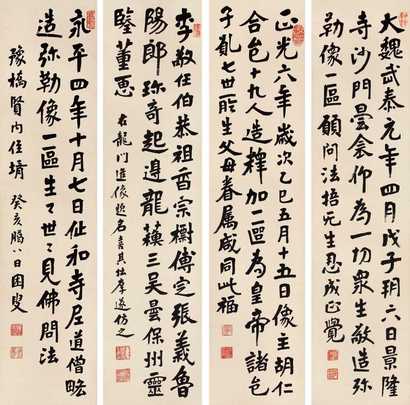 大魏武泰元年四月子朔六日景隆
寺沙門曇念仰為一切眾生敬造弥
勒像一區願問法捂无生忍成正覺
正光六年歲次乙巳五月十五日像主胡仁
合邑十九人造釋加一區為皇帝諸邑
子亂七世所生父母眷屬咸同此福
李敬任伯恭祖香宗樹傅定張義魯
陽郎珎奇起邉龍蘓三吳曇保州靈
鑒董惠 右龍門造像題名喜其壯厚遂仿之
永平四年十月七日仳和寺尼道僧略
造弥勒像一區生々世々見佛問法
豫橋賢内侄壻 癸亥臘八日困叟